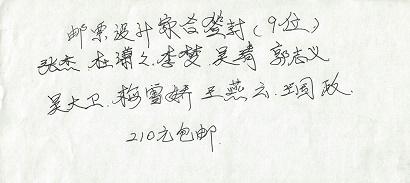 邮票设计家签封(9位)
张杰.杜潜.李梦.吴瑾.郭志义
吴大卫.梅雪娇.王燕云.王国政.
210元包邮.